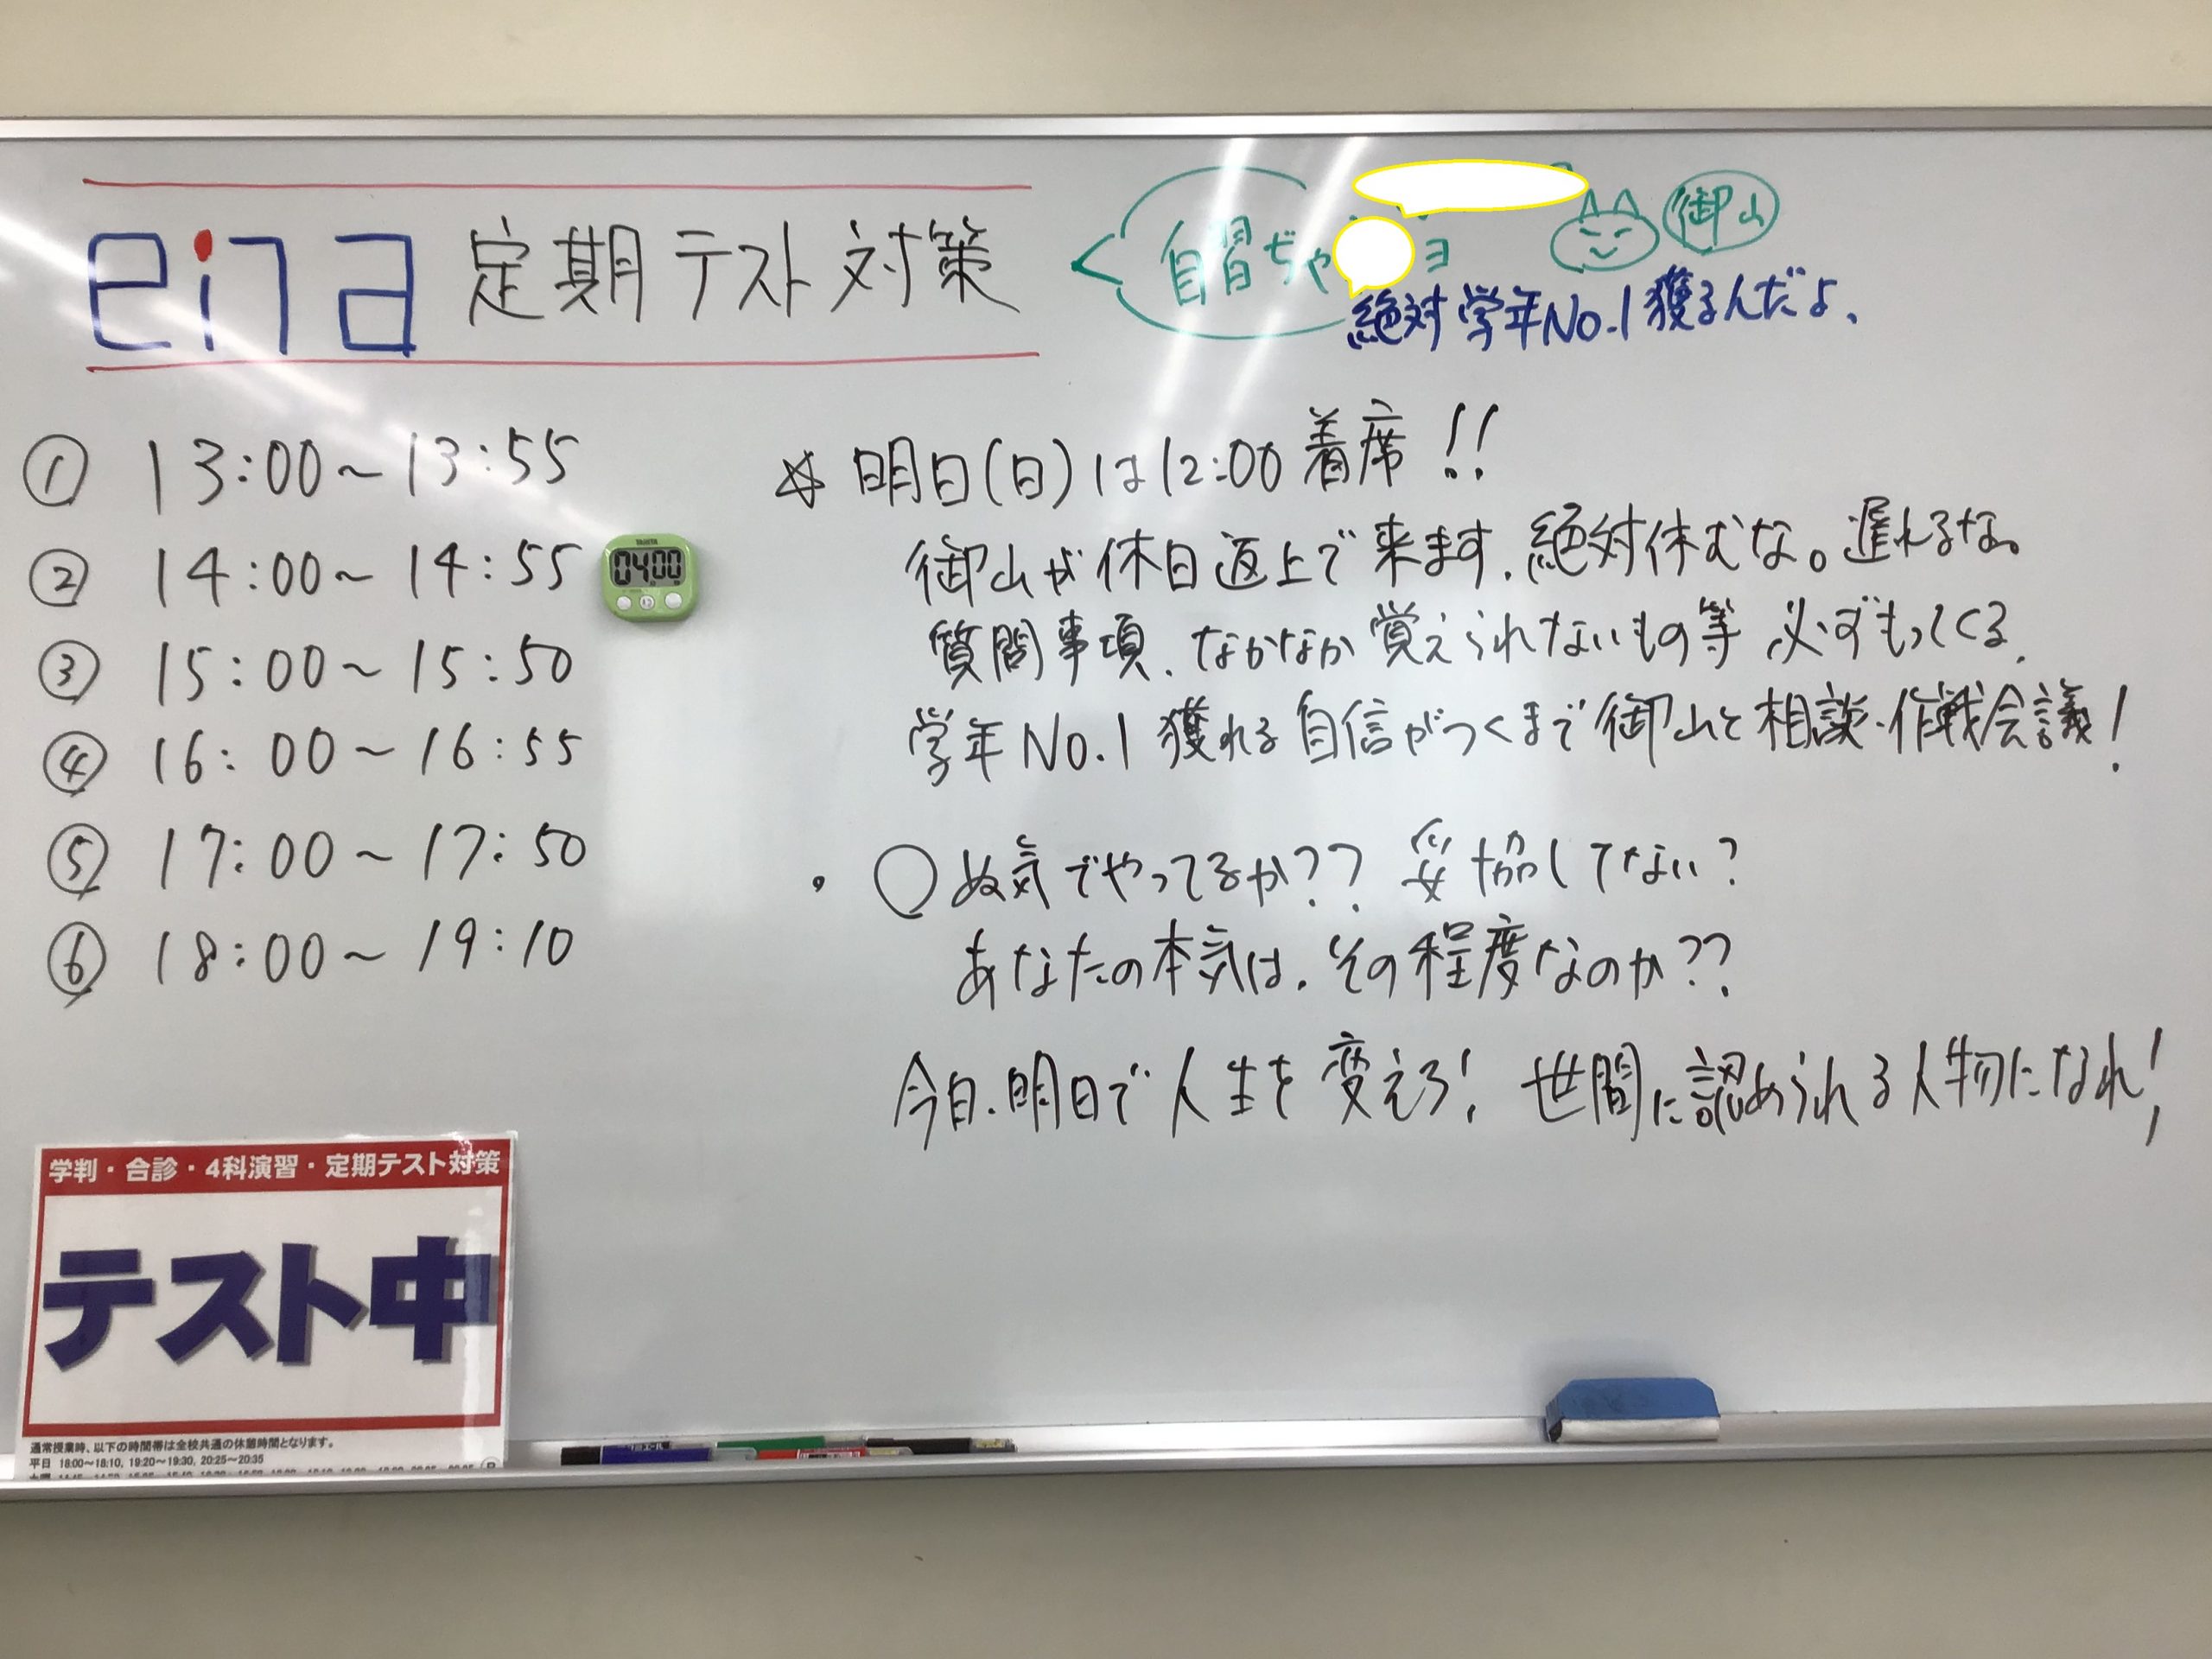 eina 定期テスト対策
自習ぢゃ
ヨ
御山
絶対学年No.1獲るんだよ、
① 13:00～13:55
② 14:00～14:55
③ 15:00～15:50
④ 16:00～16:55
⑤ 17:00～17:50
⑥ 18:00～19:10
TANITA
04:00
☆ 明日(日)は12:00着席!!
御山が休日返上で来ます、絶対休むな。遅れるな。
質問事項、なかなか覚えられないもの等 必ずもってくる、
学年No.1獲れる自信がつくまで御山と相談・作戦会議!
・〇ぬ気でやってるか?? 妥協してない?
あなたの本気は、その程度なのか??
今日、明日で人生を変えろ! 世間に認められる人物になれ!
学判・合診・4科演習・定期テスト対策
テスト中
通常授業時、以下の時間帯は全校共通の休憩時間となります。
平日 18:00～18:10, 19:20～19:30, 20:25～20:35